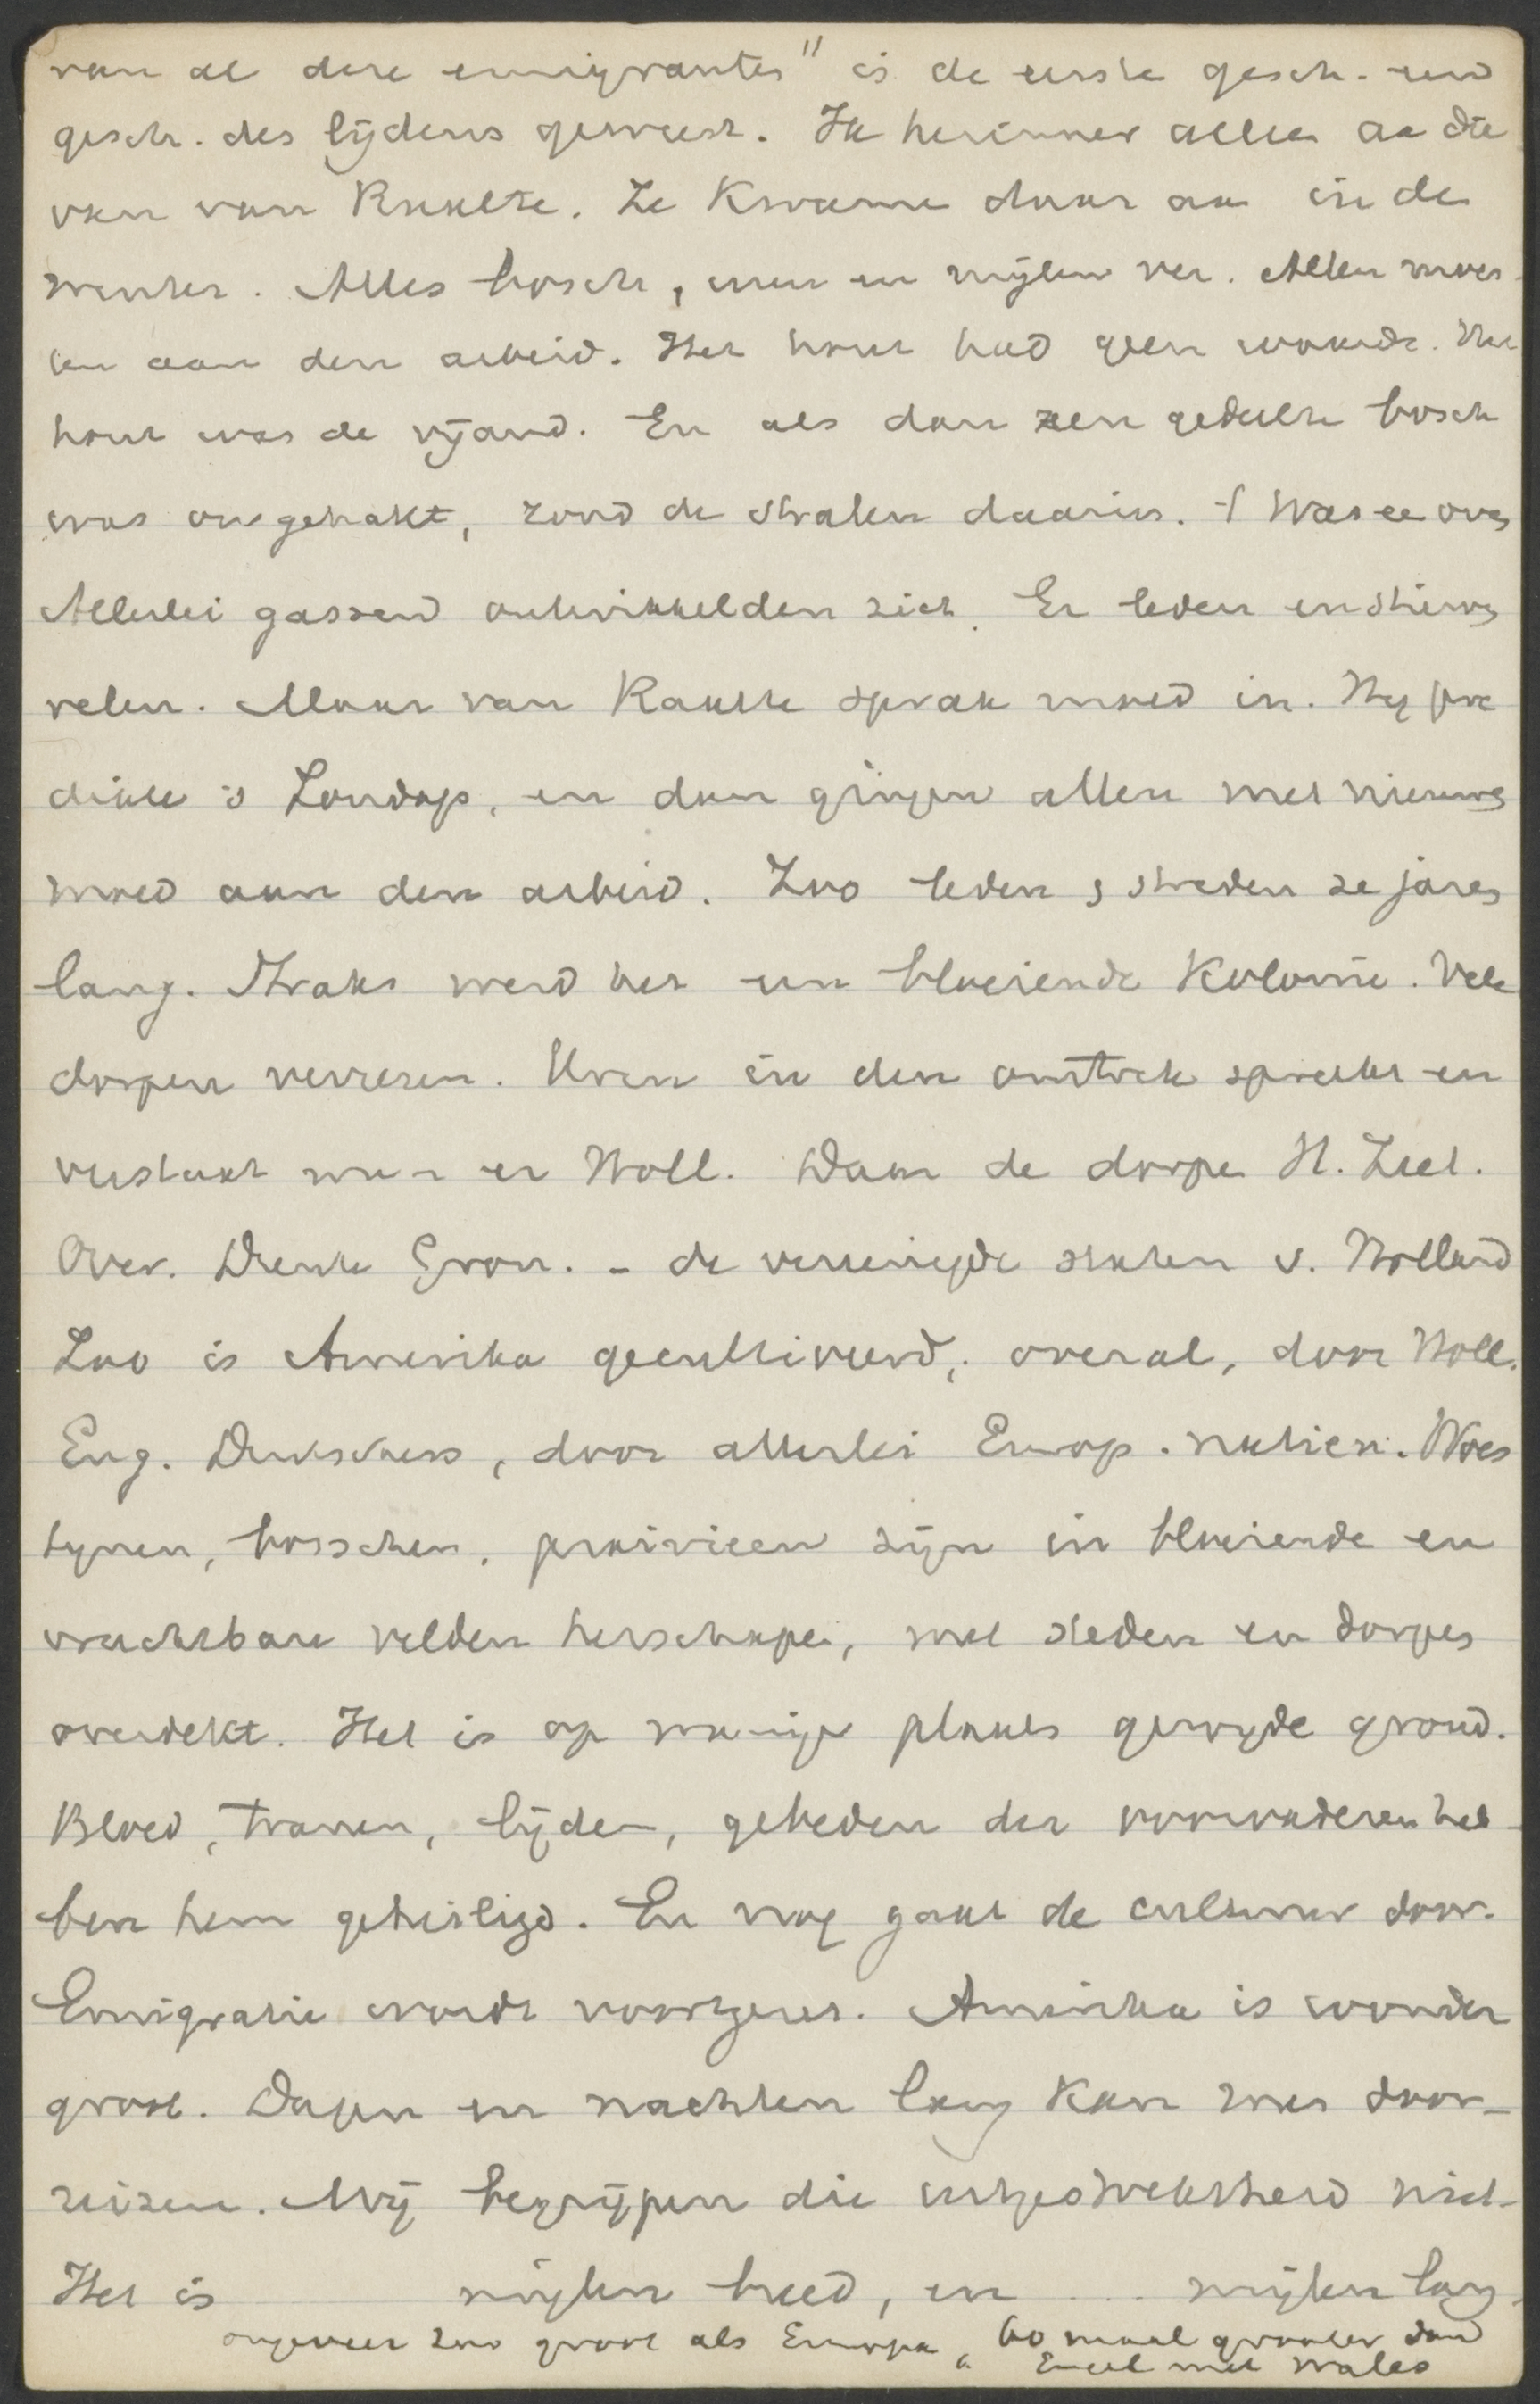 van al deze emigranten" is de eerste gesch. een
gesch. des lijdens geweest. Ik herinner alleen aa die
van van Raalte. Ze kwame daar aa in de
winter. Alles bosch, uren en mijlen ver. Allen moes-
ten aan den arbeid. Het hout had geen waarde. Het
hout was de vijand. En als dan een gedeelte bosch
was omgehakt, zond de stralen daarin. 't Was ee oven
Allerlei gassen ontwikkelden zich. Er leden en stierven
velen. Maar van Raalte sprak moed in. Hij pre
dikte 's Zondags, en dan gingen allen met nieuwen
moed aan den arbeid. Zoo leden & streden ze jaren
lang. Straks werd het een bloeiende Kolonie. Vele
dorpen verrezen. Uren in den omtrek spreekt en
verstaat men er Holl. Daar de dorpen H. Zeel.
Over. Drente Gron. - de vereenigde staten v. Holland
Zoo is Amerika gecultiveerd, overal, door Holl.
Eng. Duitschers, door allerlei Europ. natien. Woes
tynen, bosschen, prairieen zijn in bloeiende en
vruchtbare velden herschapen, met steden en dorpen
overdekt. Het is op menige plaats gewyde grond.
Bloed, tranen, lijden, gebeden der voorvaderen heb-
ben hem geheiligd. En nog gaat de cultuur door.
Emigratie wordt voortgezet. Amerika is wonder
groot. Dagen en nachten lang kan men door-
reizen. Wij begrijpen die uitgestrektheid niet.
Het is mijlen breed, en ... mijlen lang.
ongeveer zoo groot als Europa, 60 maal grooter dan
Engel met Wales